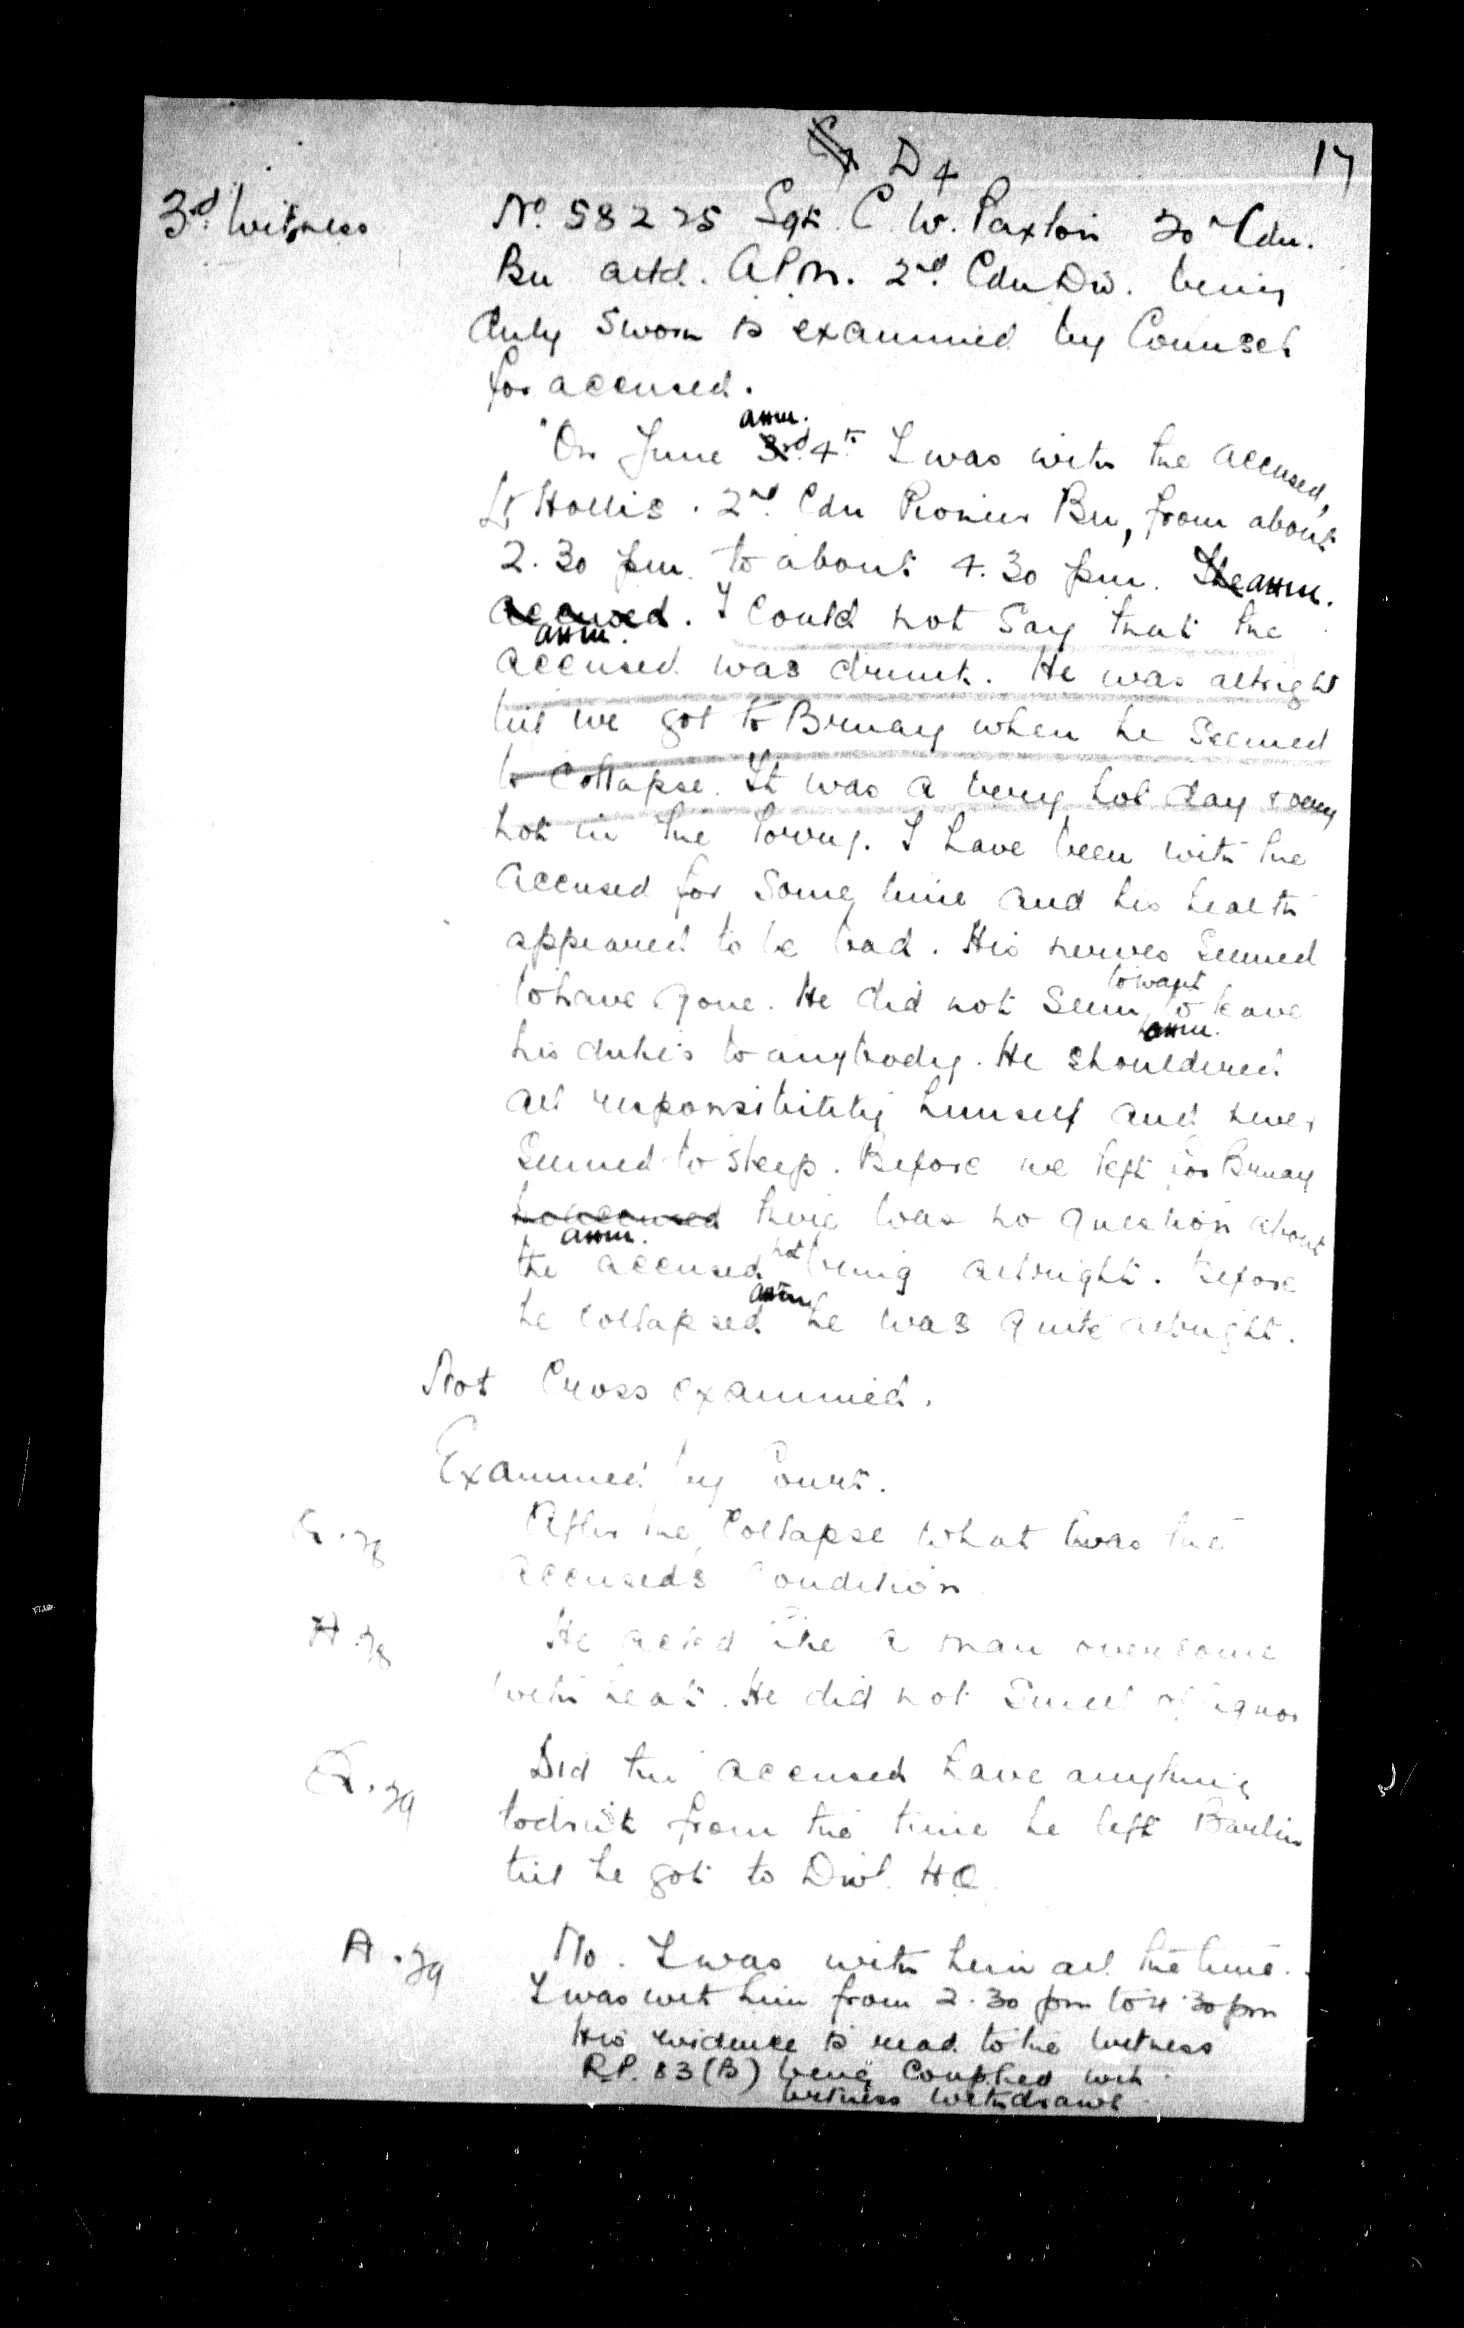 D 4 17
3rd Witness
No 58225 Sgt. C. W. Paxton 20th Cdn.
Bn attd. A.P.M. 2nd Cdn Div. being
duly sworn is examined by Counsel
for accused.
"On June 3rd 4th I was with the accused,
Lt Hollis. 2nd Cdn Pioneer Bn, from about
2.30 pm. to about 4.30 pm. The
accused. I could not say that the
accused was drunk. He was alright
till we got to Bruay when he seemed
to collapse. It was a very hot day & very
hot in the lorry. I have been with the
accused for some time and his health
appeared to be bad. His nerves seemed
to have gone. He did not seem to want to leave
his duties to anybody. He shouldered
all responsibility himself and never
seemed to sleep. Before we left for Bruay
there was no question about
the accused not being alright. Before
he collapsed he was quite alright.
Not Cross examined.
Examined by Court.
Q. 78 After the collapse what was the
accused's condition
A. 78 He acted like a man overcome
with heat. He did not smell of liquor
Q. 79 Did the accused have anything
to drink from the time he left Barlin
till he got to Divl. HQ
A. 79 No. I was with him all the time.
I was with him from 2.30 pm to 4.30 pm
His evidence is read to the witness
R.P. 83 (B) being complied with
witness withdraws